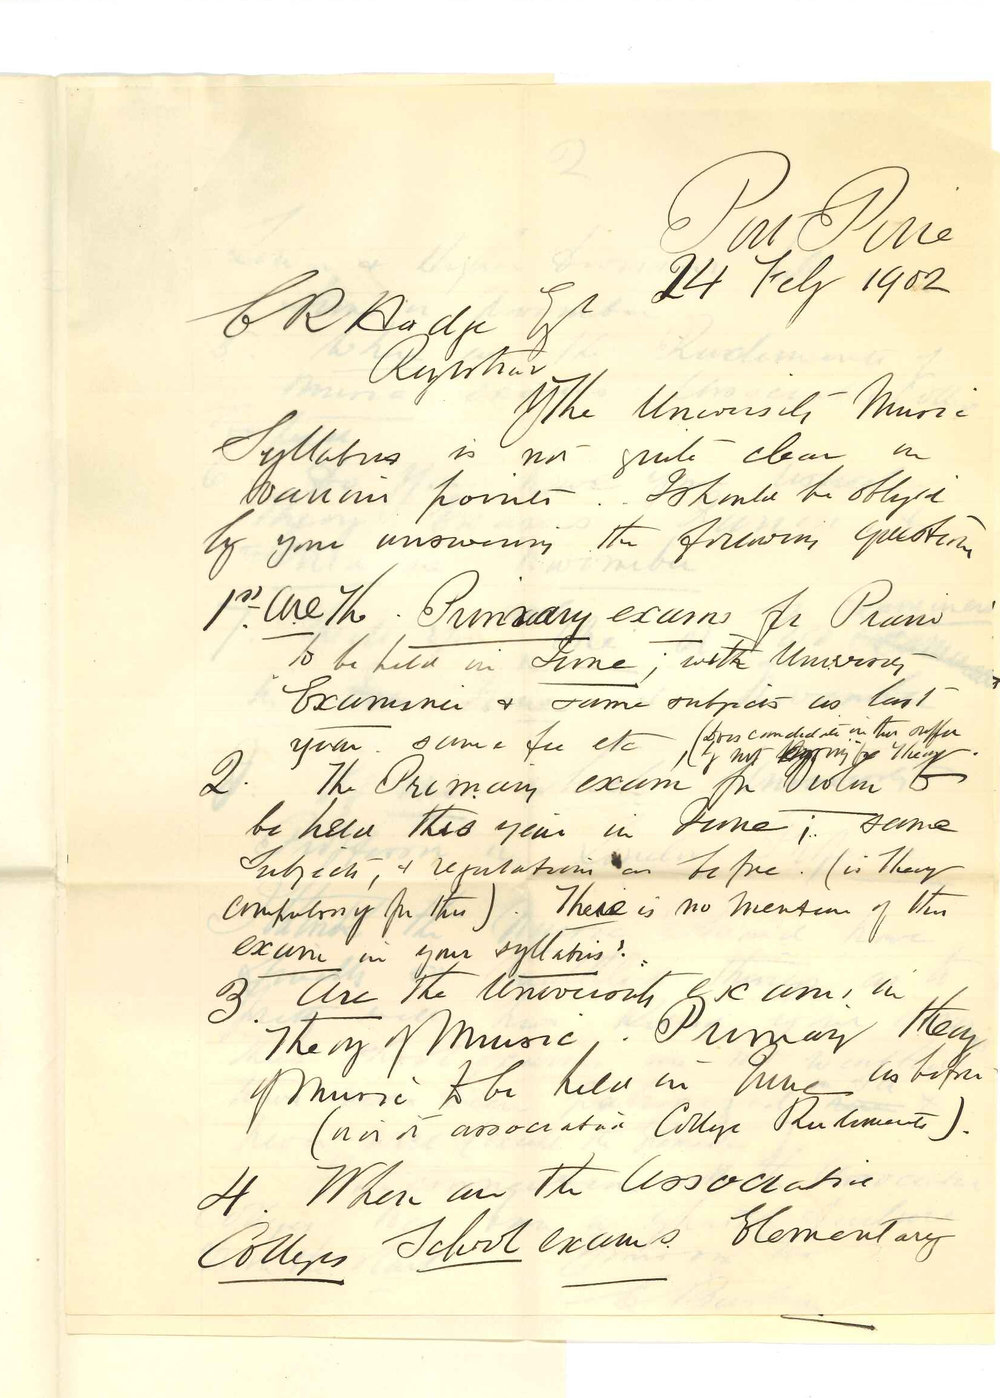 Port Pirie
24 Feby 1902
C R Hodge Esqr
Registrar
The University Music
Syllabus is not quite clear in
various points. I should be oblig'd
by your answering the following questions
1st Are the Primary exams for Piano
to be held in June; with University
Examiner & same subjects as last
year. same fee etc (Does candidate in this suffer
by not going for Theory.
2. The Primary exam for Violin to
be held this year in June; same
Subjects, & regulations as before. (is theory
compulsory for this). There is no mention of this
exam in your syllabus.
3. Are the University exams in
Theory of Music. Primary theory
of Music to be held in June as before
(or is it associated College Rudiments).
4. When are the Associated
Colleges School exams. Elementary